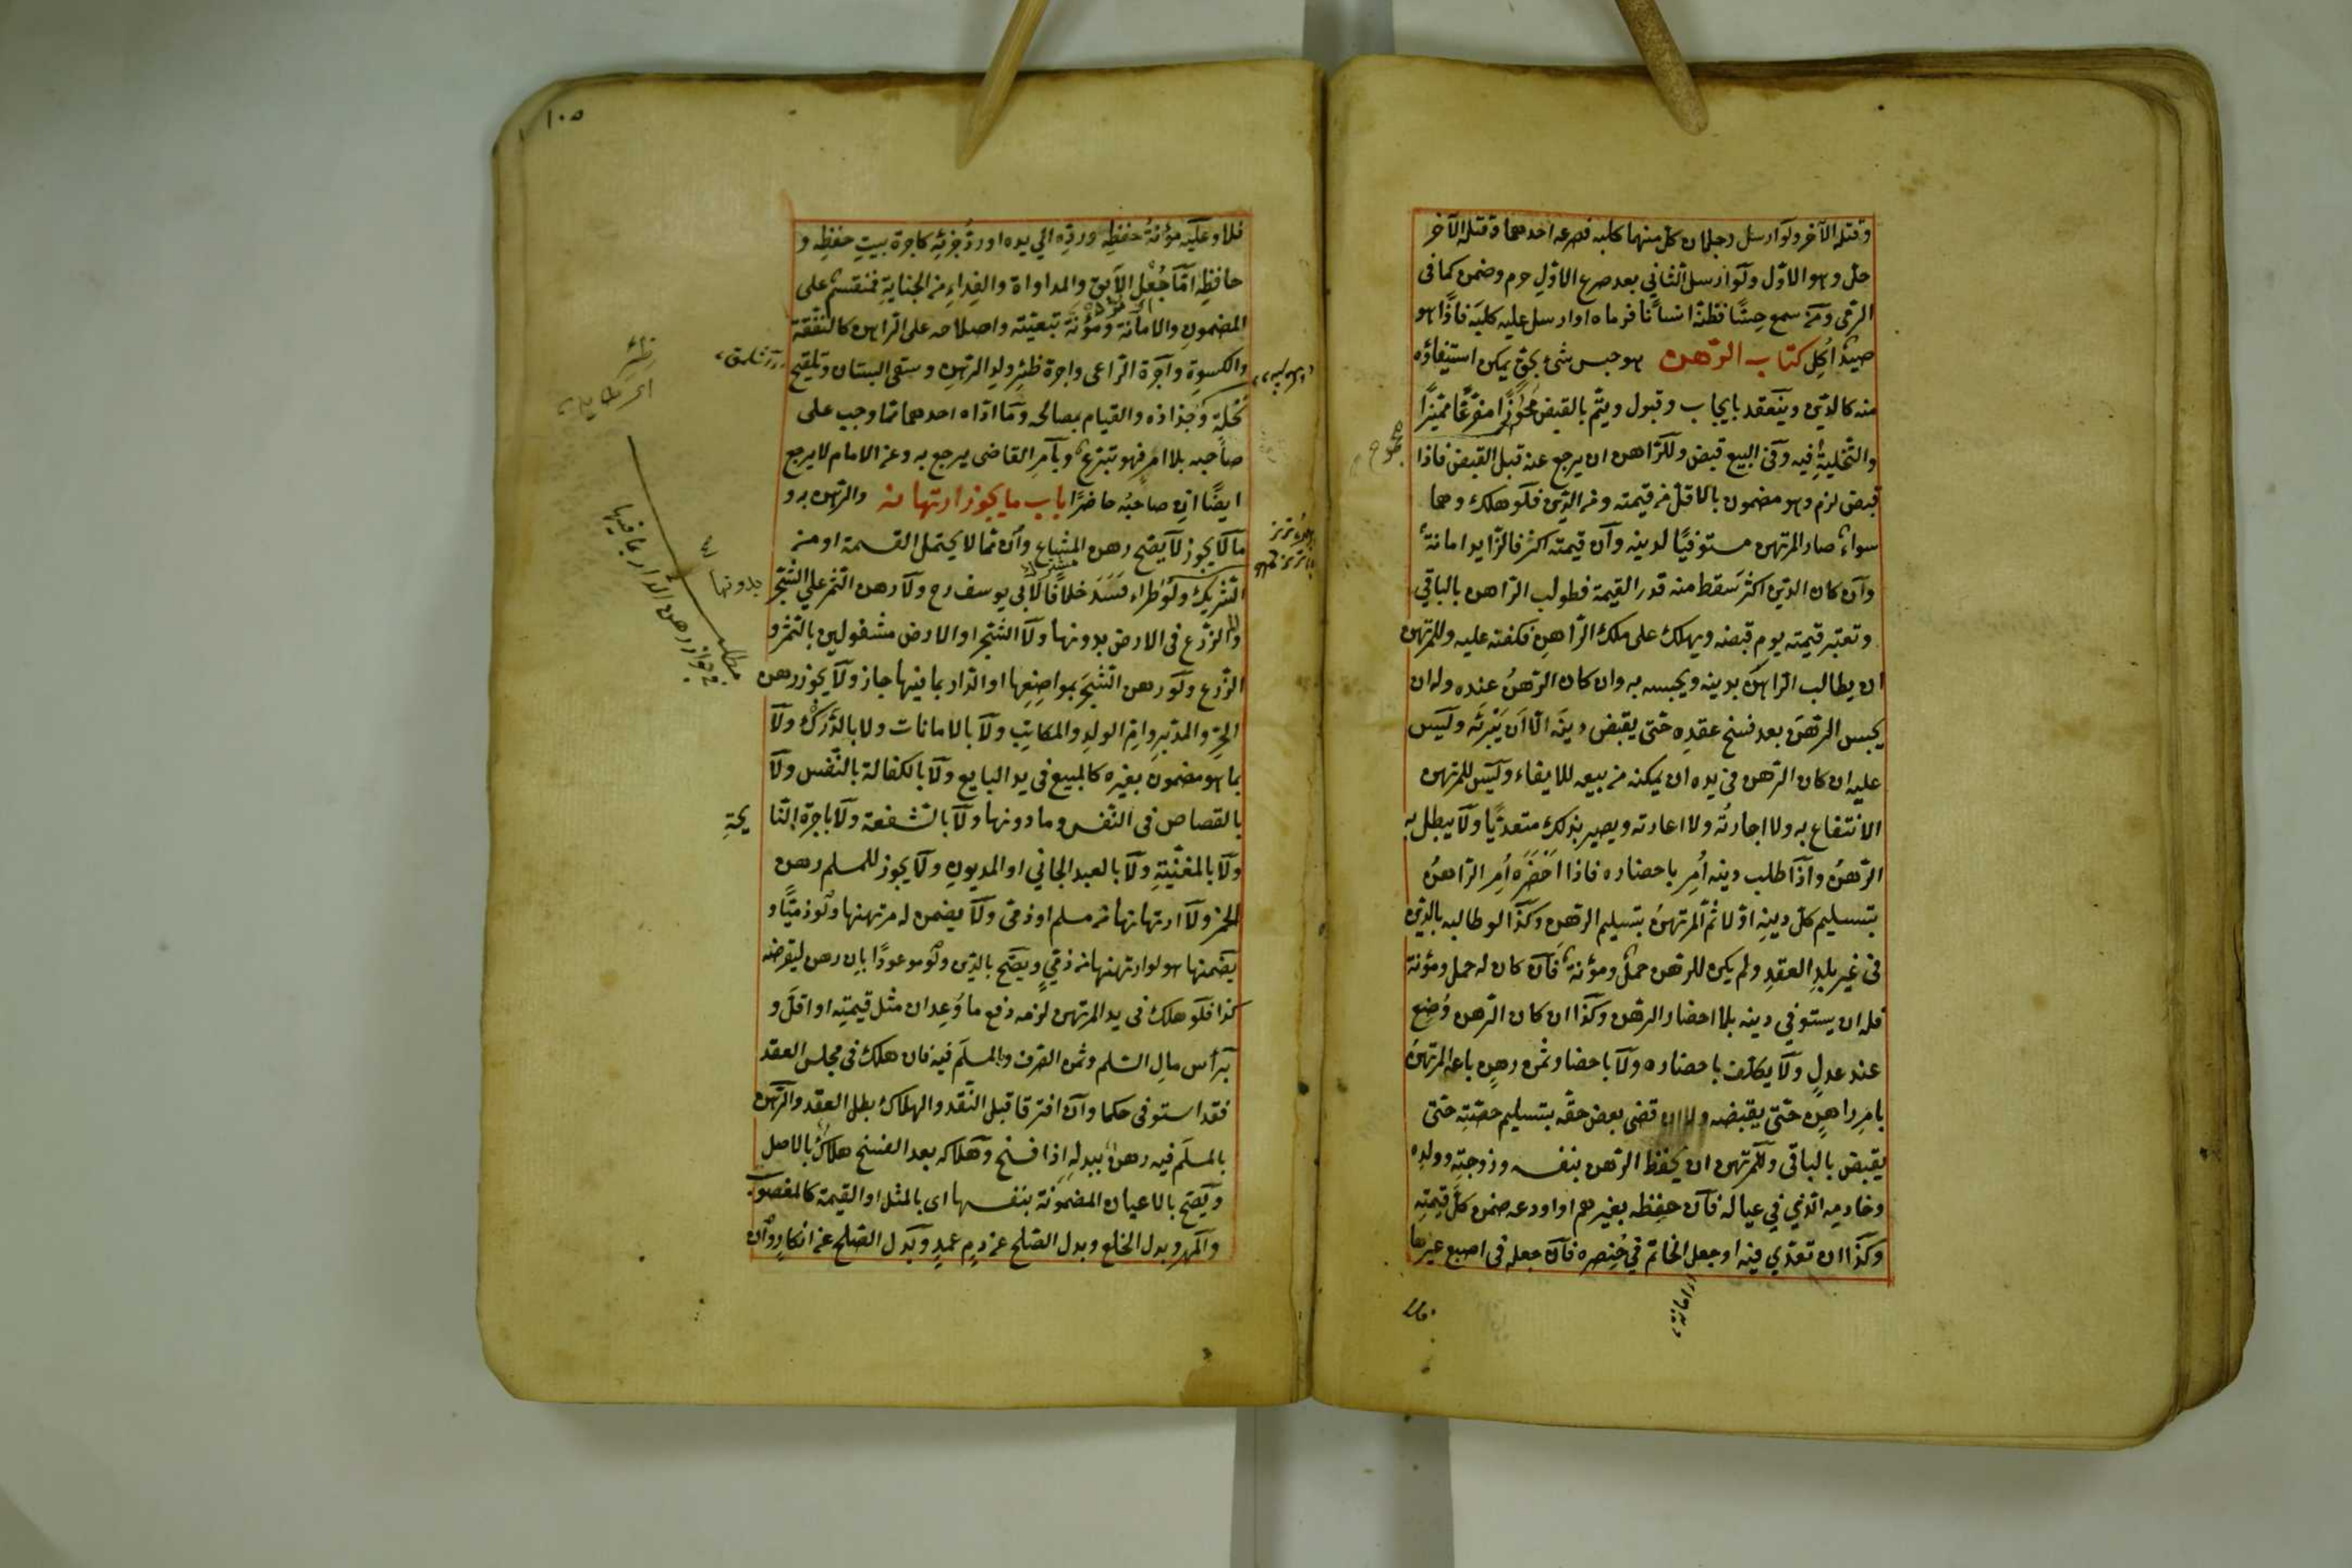 وقتله الآخر ولو ارسل رجلان كل منهما كلبه فصرعه احدهما وقتله الآخر
حل وهو الاول ولو ارسل الثاني بعد صرع الاول حرم وضمن كما فى
الرمى ومن سمع حسًّا فظنه انسانا فرماه او ارسل عليه كلبه فاذا هو
صيدٌ اُكِل كتاب الرهن هو حبس شئ بحقٍ يمكن استيفاؤه
منه كالدين وينعقد بايجاب وقبول ويتم بالقبض محوزًا مفرغًا مميزًا
والتخلية فيه وفى البيع قبض وللراهن ان يرجع عنه قبل القبض فاذا
قبض لزم وهو مضمون بالاقل من قيمته ومن الدين فلو هلك وهما
سواء صار المرتهن مستوفيًا لدينه وان قيمته اكثر فالزايد امانة
وان كان الدين اكثر سقط منه قدر القيمة فطولب الراهن بالباقي
وتعتبر قيمته يوم قبضه ويهلك على ملك الراهن فكفنه عليه وللمرتهن
ان يطالب الراهن بدينه ويحبسه به وان كان الرهن عنده وله ان
يحبس الرهن بعد فسخ عقده حتى يقبض دينه الا ان يبرئه وليس
عليه ان كان الرهن فى يده ان يمكنه من بيعه للايفاء وليس للمرتهن
الانتفاع به ولا اجارته ولا اعارته ويصير بذلك متعديًا ولا يبطل به
الرهن واذا طلب دينه اُمر باحضاره فاذا احضره اُمر الراهن
بتسليم كل دينه اوّلا ثم المرتهن بتسليم الرهن وكذا لو طالبه بالدين
فى غير بلد العقد ولم يكن للرهن حمل ومؤنة فان كان له حمل ومؤنة
فله ان يستوفي دينه بلا احضار الرهن وكذا ان كان الرهن وُضع
عند عدل ولا يكلف باحضاره ولا باحضار ثمن رهن باعه المرتهن
بامر راهنه حتى يقبضه ولا ان قضى بعض حقه بتسليم حصته حتى
يقبض بالباقى وللمرتهن ان يحفظ الرهن بنفسه وزوجته وولده
وخادمه الذي في عياله فان حفظه بغيرهم او اودعه ضمن كل قيمته
وكذا ان تعدي فيه او جعل الخاتم في خنصره فان جعله فى اصبع غيرها
١٠٥
فلا وعليه مؤنة حفظه ورده الي يده او رد جزئه كاجرة بيت حفظه و
حافظه امّا جُعل الآبق والمداواة والفداء من الجناية فمنقسم على
المضمون والامانة ومؤنة تبقيته واصلاحه على الراهن كالنفقة
والكسوة واجرة الراعى واجرة ظئر ولد الرهن وسقى البستان وتلقيح
نخله وجذاذه والقيام بمصالحه وما اداه احدهما مما وجب على
صاحبه بلا امر فهو تبرع وبامر القاضى يرجع به وعن الامام لا يرجع
ايضًا ان صاحبه حاضرًا باب ما يجوز ارتهانه والرهن به و
ما لا يجوز لا يصح رهن المشاع وان مما لا يحتمل القسمة او من
الشريك ولو طراء فسد خلافا لابى يوسف رح ولا رهن الثمر على الشجر
ولا الزرع فى الارض بدونها ولا الشجر او الارض مشغولين بالثمر و
الزرع ولو رهن الشجر بمواضعها او الدار بما فيها جاز ولا يجوز رهن
الحر والمدبر وام الولد والمكاتب ولا بالامانات ولا بالدرك ولا
بما هو مضمون بغيره كالمبيع فى يد البايع ولا بالكفالة بالنفس ولا
بالقصاص فى النفس وما دونها ولا بالشفعة ولا باجرة النا
يحةِ
ولا بالمغنية ولا بالعبد الجاني او المديون ولا يجوز للمسلم رهن
الخمر ولا ارتهانها من مسلم او ذمى ولا يضمن له مرتهنها ولو ذميًا و
يضمنها هو لو ارتهنها من ذمي ويصح بالدين ولو موعودًا بان رهن ليقرضه
كذا فلو هلك فى يد المرتهن لزمه دفع ما وُعد ان مثل قيمته او اقل و
برأس مال السلم وثمن الصرف والمسلم فيه فان هلك فى مجلس العقد
فقد استوفى حكما وان افترقا قبل النقد والهلاك بطل العقد والرهن
بالمسلم فيه رهن ببدله اذا فسخ وهلاكه بعد الفسخ هلاك بالاصل
ويصح بالاعيان المضمونة بنفسها اى بالمثل او القيمة كالمغصوب
والمهر وبدل الخلع وبدل الصلح عن دم عمد وبدل الصلح عن انكار وان
ظئر
بدونها
مطلب
جواز رهن الدار بما فيها